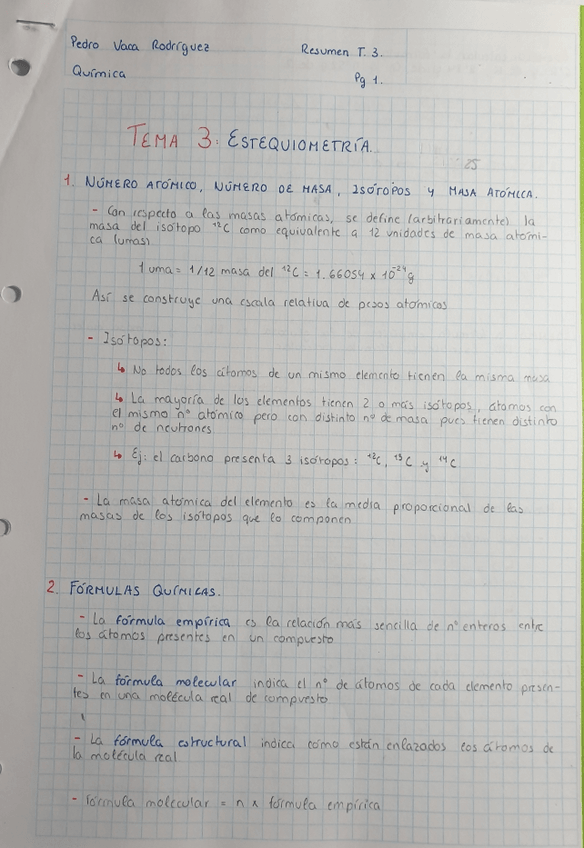 Pedro Vaca Rodríguez Resumen T. 3.
Química Pg 1.
TEMA 3: ESTEQUIOMETRÍA.
25
1. NÚMERO ATÓMICO, NÚMERO DE MASA, ISÓTOPOS Y MASA ATÓMICA.
- Con respecto a las masas atómicas, se define (arbitrariamente) la
masa del isótopo ¹²C como equivalente a 12 unidades de masa atómi-
ca (umas)
1 uma = 1/12 masa del ¹²C = 1.66054 x 10⁻²⁴ g
Así se construye una escala relativa de pesos atómicos
- Isótopos:
↳ No todos los átomos de un mismo elemento tienen la misma masa
↳ La mayoría de los elementos tienen 2 o más isótopos, átomos con
el mismo nº atómico pero con distinto nº de masa pues tienen distinto
nº de neutrones
↳ Ej: el carbono presenta 3 isótopos: ¹²C, ¹³C y ¹⁴C
- La masa atómica del elemento es la media proporcional de las
masas de los isótopos que lo componen
2. FÓRMULAS QUÍMICAS.
- La fórmula empírica es la relación más sencilla de nº enteros entre
los átomos presentes en un compuesto
- La fórmula molecular indica el nº de átomos de cada elemento presen-
tes en una molécula real de compuesto
- La fórmula estructural indica cómo están enlazados los átomos de
la molécula real
- Fórmula molecular = n x fórmula empírica